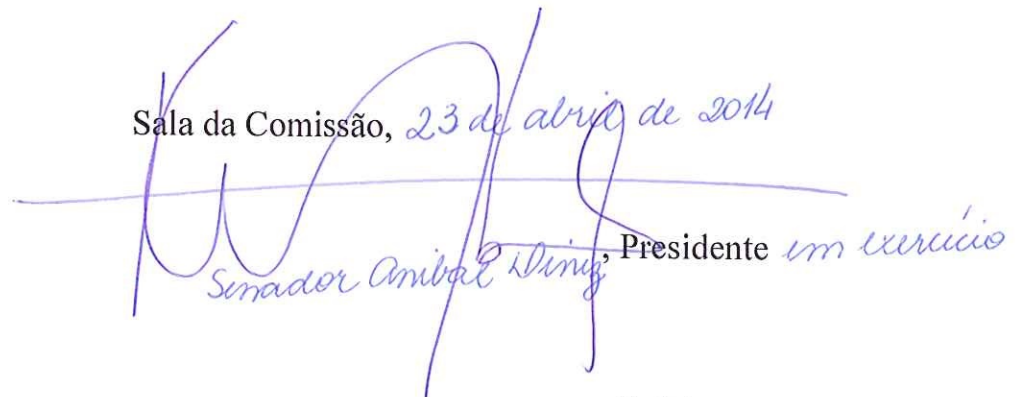 Sala da Comissão, 23 de abril de 2014
Senador Anibal Diniz, Presidente em exercício